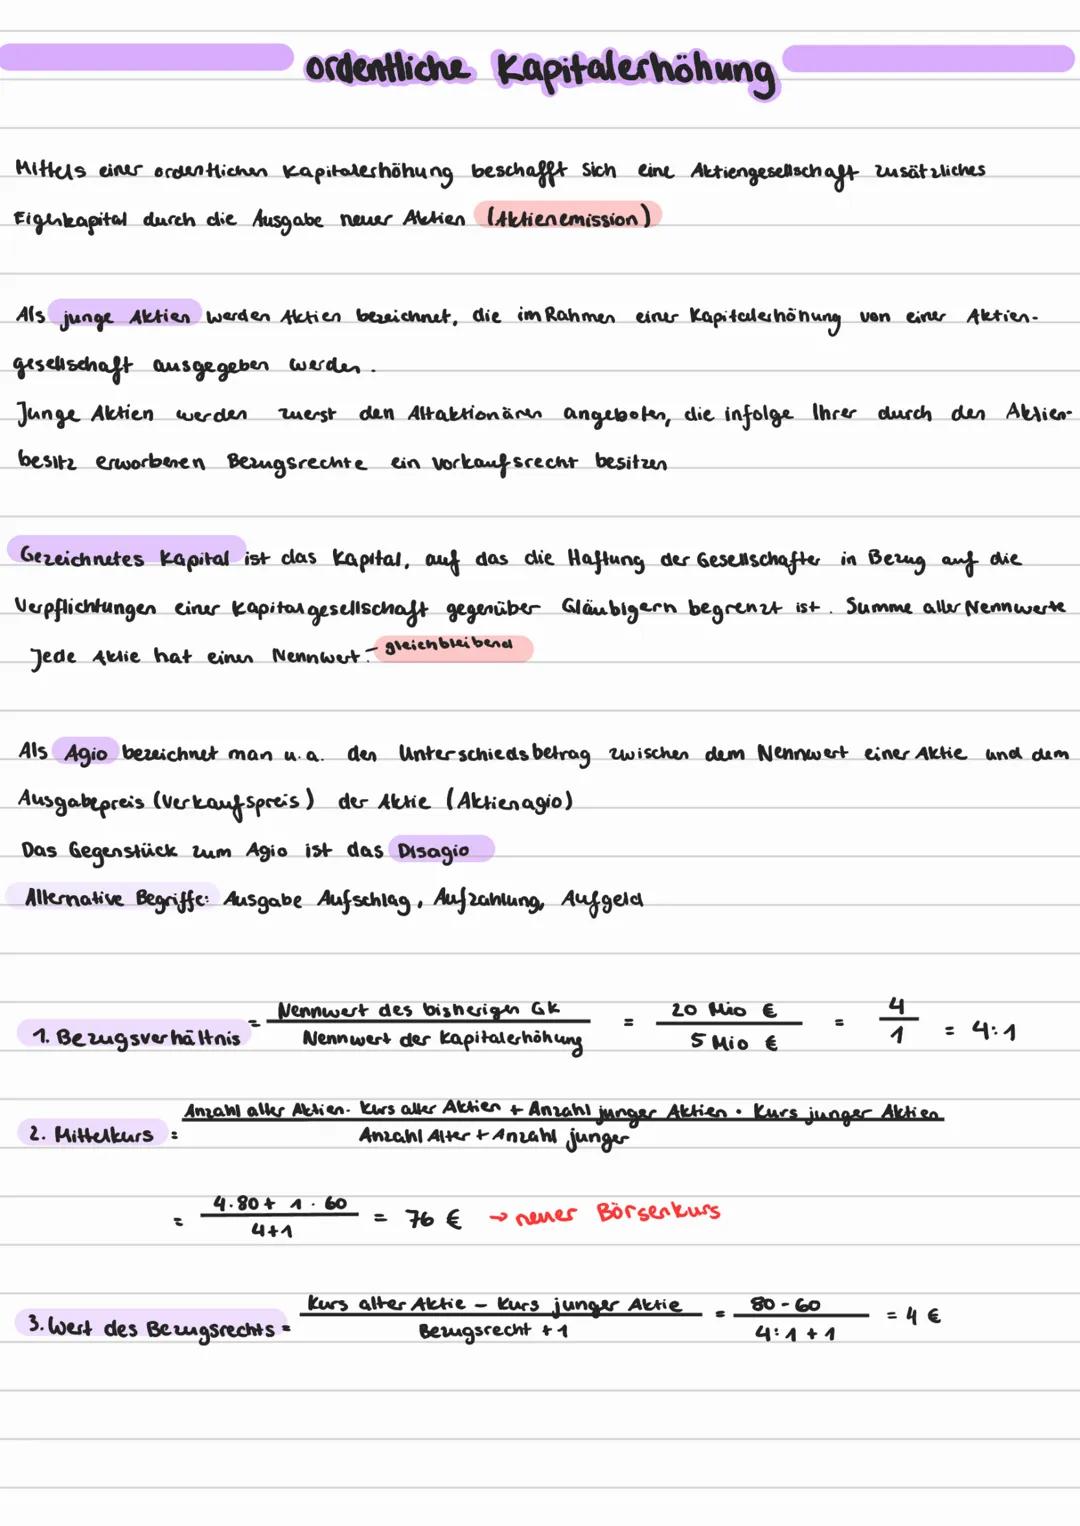 ordentliche Kapitalerhöhung
Mittels einer ordentlichen Kapitalerhöhung beschafft sich eine Aktiengesellschaft zusätzliches
Eigenkapital durch die Ausgabe neuer Aktien (Aktienemission)
Als junge Aktien werden Aktien bezeichnet, die im Rahmen einer Kapitalerhöhung von einer Aktien-
gesellschaft ausgegeben werden.
Junge Aktien werden zuerst den Altaktionären angeboten, die infolge Ihrer durch den Aktien-
besitz erworbenen Bezugsrechte ein Vorkaufsrecht besitzen
Gezeichnetes Kapital ist das Kapital, auf das die Haftung der Gesellschafter in Bezug auf die
Verpflichtungen einer Kapitalgesellschaft gegenüber Gläubigern begrenzt ist. Summe aller Nennwerte
Jede Aktie hat einen Nennwert. - gleichbleibend
Als Agio bezeichnet man u.a. den Unterschiedsbetrag zwischen dem Nennwert einer Aktie und dem
Ausgabepreis (Verkaufspreis) der Aktie (Aktienagio)
Das Gegenstück zum Agio ist das Disagio
Alternative Begriffe: Ausgabe Aufschlag, Aufzahlung, Aufgeld
Nennwert des bisherigen GK 20 Mio € 4
1. Bezugsverhältnis = = = = 4:1
Nennwert der Kapitalerhöhung 5 Mio € 1
Anzahl alter Aktien · Kurs alter Aktien + Anzahl junger Aktien · Kurs junger Aktien
2. Mittelkurs =
Anzahl Alter + Anzahl junger
4·80 + 1·60
= = 76 € → neuer Börsenkurs
4+1
Kurs alter Aktie – Kurs junger Aktie 80 - 60
3. Wert des Bezugsrechts = = = 4 €
Bezugsrecht + 1 4:1 + 1